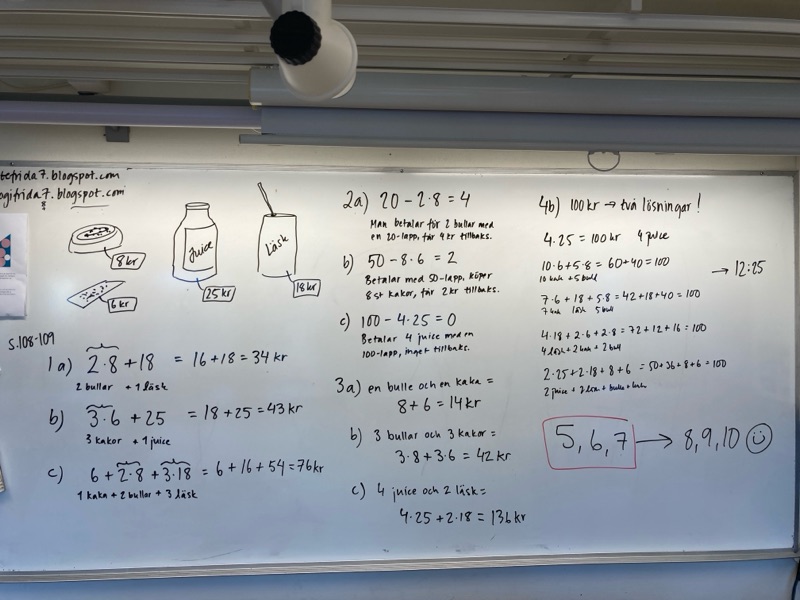 tefrida7.blogspot.com
ogifrida7.blogspot.com
8
8 kr
6 kr
Juice
25 kr
Läsk
18 kr
s.108-109
1a) 2·8 + 18 = 16 + 18 = 34 kr
2 bullar + 1 läsk
b) 3·6 + 25 = 18 + 25 = 43 kr
3 kakor + 1 juice
c) 6 + 2·8 + 3·18 = 6 + 16 + 54 = 76 kr
1 kaka + 2 bullar + 3 läsk
2a) 20 - 2·8 = 4
Man betalar för 2 bullar med
en 20-lapp, får 4 kr tillbaks.
b) 50 - 8·6 = 2
Betalar med 50-lapp, köper
8 st kakor, får 2 kr tillbaks.
c) 100 - 4·25 = 0
Betalar 4 juice med en
100-lapp, inget tillbaks.
3a) en bulle och en kaka =
8 + 6 = 14 kr
b) 3 bullar och 3 kakor =
3·8 + 3·6 = 42 kr
c) 4 juice och 2 läsk =
4·25 + 2·18 = 136 kr
4b) 100 kr → två lösningar!
4·25 = 100 kr 4 juice
10·6 + 5·8 = 60 + 40 = 100
10 kak + 5 bull
→ 12:25
7·6 + 18 + 5·8 = 42 + 18 + 40 = 100
7 kak läsk 5 bull
4·18 + 2·6 + 2·8 = 72 + 12 + 16 = 100
4 läsk + 2 kak + 2 bull
2·25 + 2·18 + 8 + 6 = 50 + 36 + 8 + 6 = 100
2 juice + 2 läsk + bulle + kak
5, 6, 7 → 8, 9, 10